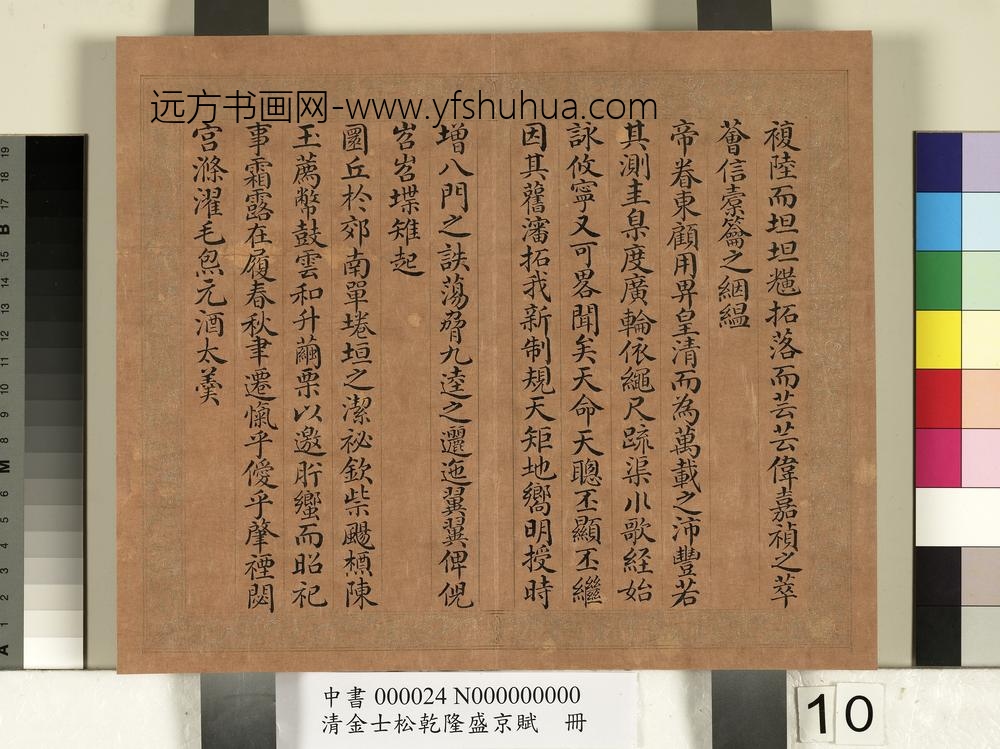 远方书画网-www.yfshuhua.com
複陸而坦坦拓落而芸芸偉嘉禎之萃
薈信橐籥之絪縕
帝眷東顧用畀皇清而為萬載之沛豐若
其測圭臬度廣輪依繩尺疏渠水歌經始
詠攸寧又可畧聞矣天命天聰丕顯丕繼
因其舊瀋拓我新制規天矩地嚮明授時
增八門之詄蕩脅九逵之邐迤翼翼俾倪
岧岧堞雉起
圜丘於郊南單埢垣之潔祕欽柴颺槱陳
玉薦幣鼓雲和升繭栗以邀肸蠁而昭祀
事霜露在履春秋聿遷愾乎僾乎肇禋閟
宮滌濯毛炰元酒太羹
中書 000024 N000000000
清金士松乾隆盛京賦 冊
10